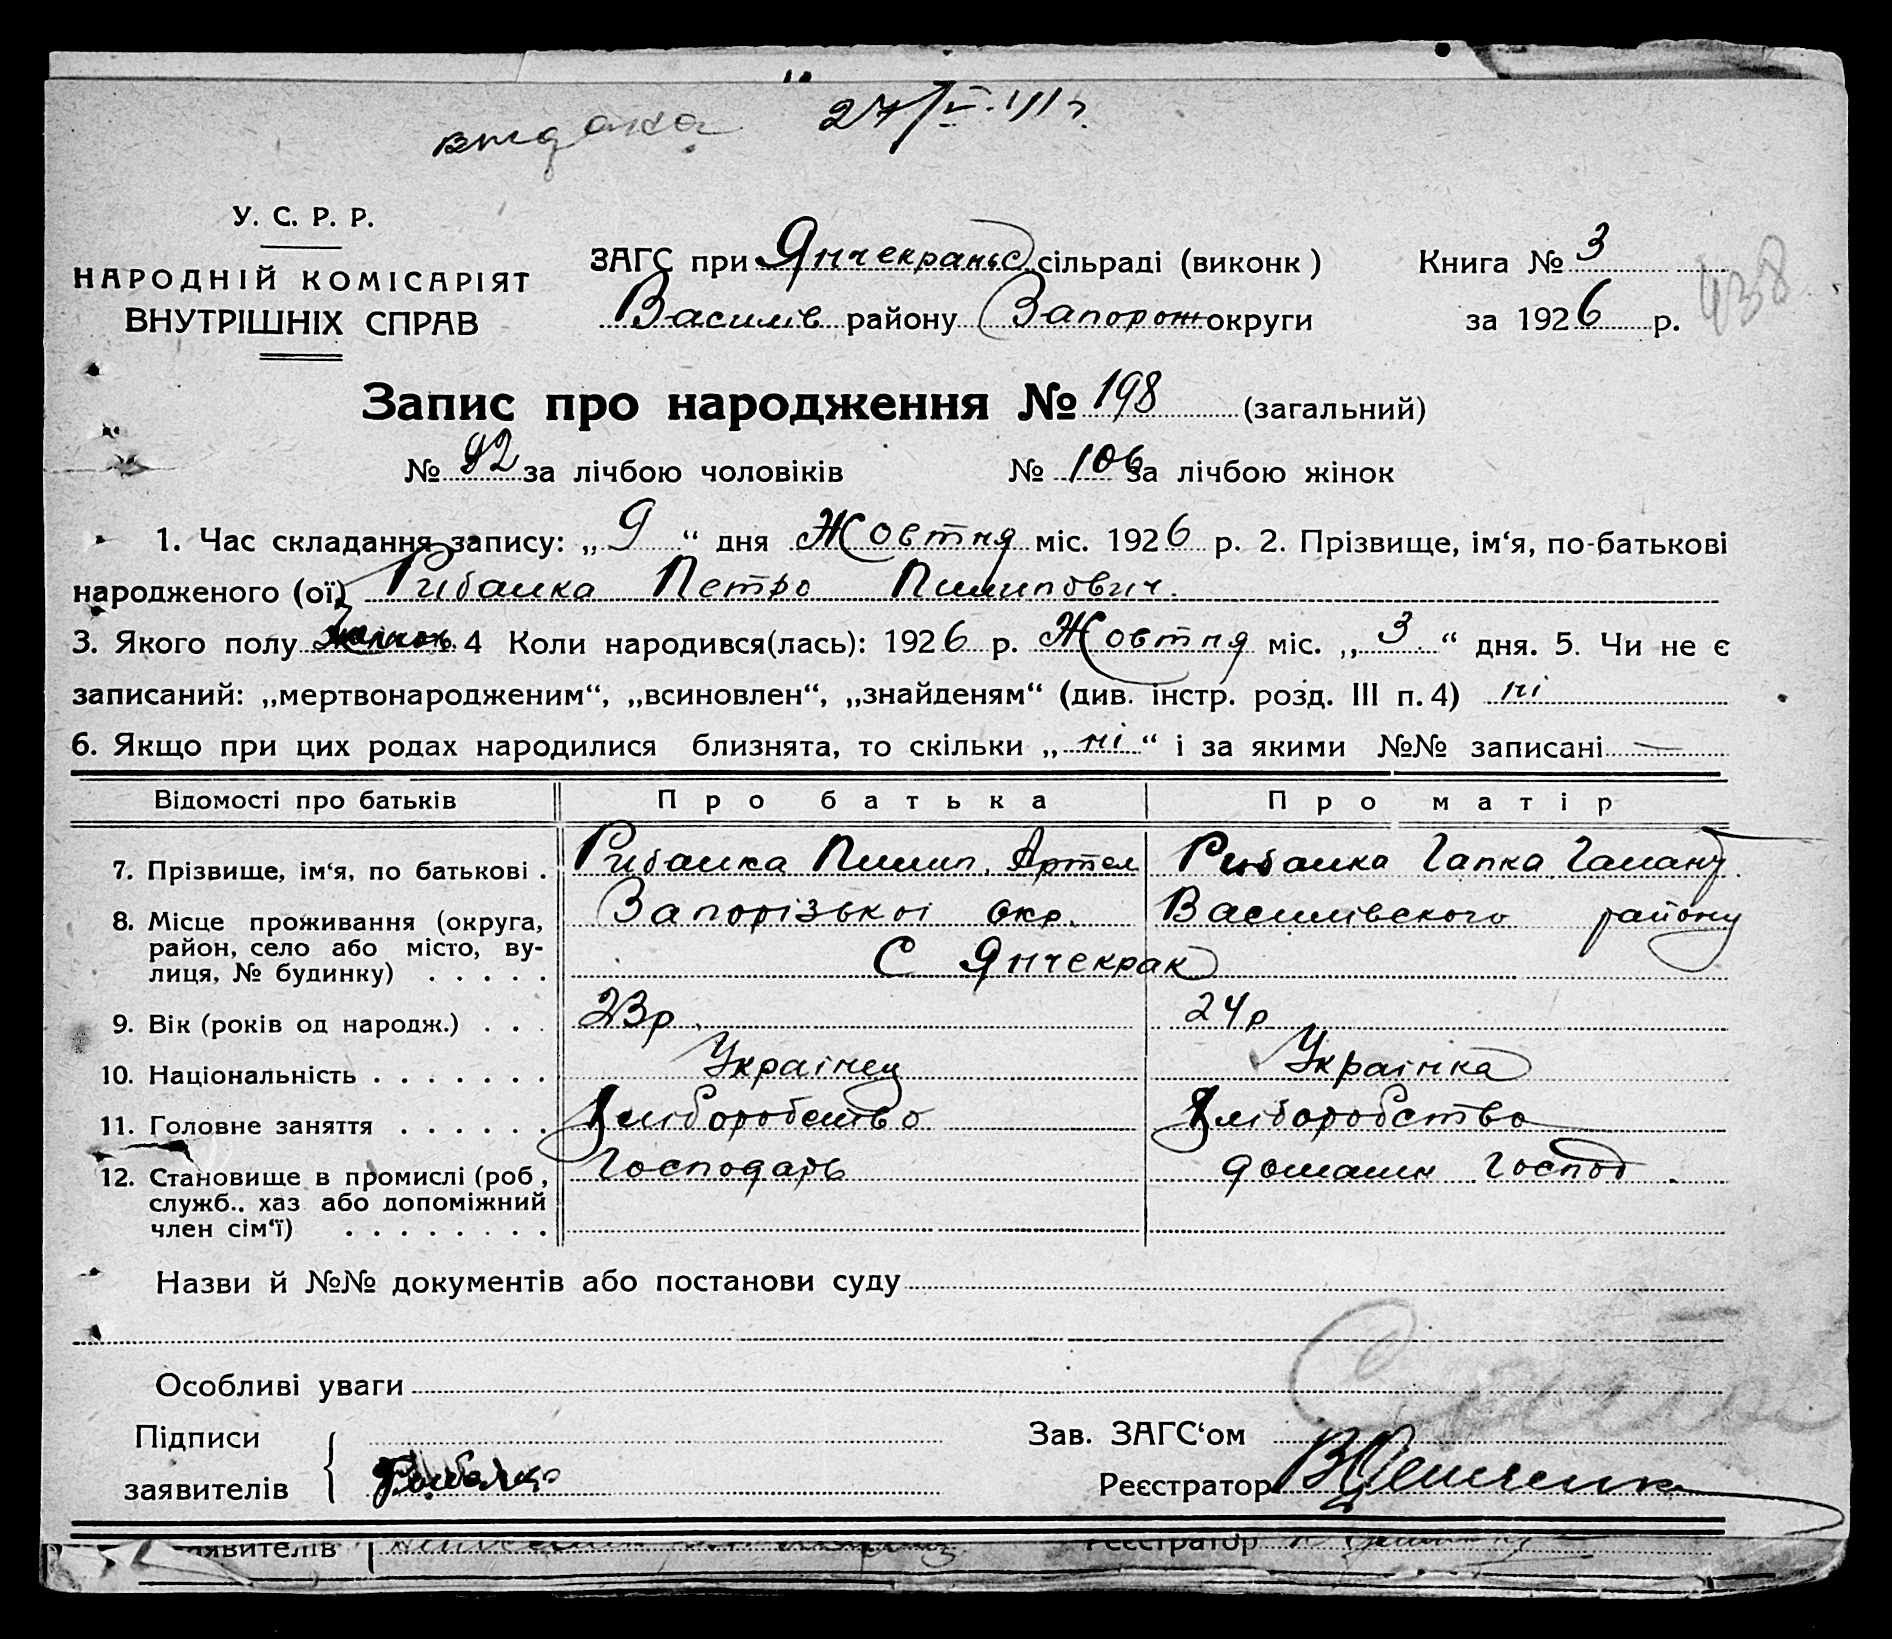 видана 27/V. 41 г.
У. С. Р. Р.
НАРОДНІЙ КОМІСАРІЯТ
ВНУТРІШНІХ СПРАВ
ЗАГС при Янчекраньс сільраді (виконк)
Василів району Запорож округи
Книга № 3
за 1926 р.
438
Запис про народження № 198 (загальний)
№ 92 за лічбою чоловіків № 106 за лічбою жінок
1. Час складання запису: „ 9 “ дня Жовтня міс. 1926 р. 2. Прізвище, ім‘я, по-батькові
народженого (ої) Рибалка Петро Пилипович.
3. Якого полу 4 Коли народився(лась): 1926 р. Жовтня міс. „ 3 “ дня. 5. Чи не є
записаний: „мертвонародженим“, „всиновлен“, „знайденям“ (див. інстр. розд. III п. 4) ні
6. Якщо при цих родах народилися близнята, то скільки „ ні “ і за якими №№ записані —
Відомості про батьків Про батька Про матір
7. Прізвище, ім‘я, по батькові . Рибалка Пилип. Артем Рибалка Гапка
8. Місце проживання (округа, Запорізькоі окр. Василівского району
район, село або місто, ву-
лиця, № будинку) . . . . . С Янчекрак
9. Вік (років од народж.) . . . 23р. 24р
10. Національність . . . . . . . Украінец Украінка
11. Головне заняття . . . . . . Хліборобство Хліборобство
12. Становище в промислі (роб, Господарь домашн. Господ.
служб.. хаз або допоміжний
член сім‘ї) . . . . . . . .
Назви й №№ документів або постанови суду
Особливі уваги
Підписи
заявителів Рибалка
Зав. ЗАГС‘ом
Реєстратор
явителів Реєстратор